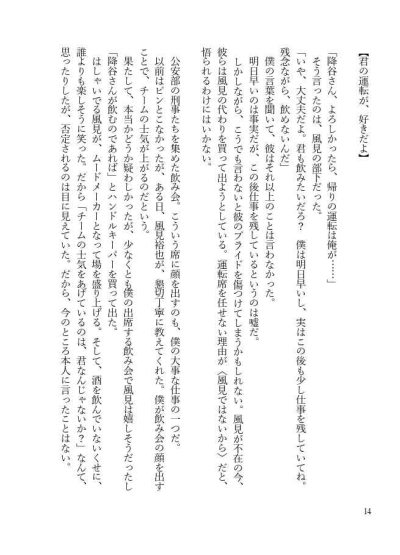 【君の運転が、好きだよ】
「降谷さん、よろしかったら、帰りの運転は俺が……」
そう言ったのは、風見の部下だった。
「いや、大丈夫だよ。君も飲みたいだろ？　僕は明日早いし、実はこの後も少し仕事を残していてね。
残念ながら、飲めないんだ」
僕の言葉を聞いて、彼はそれ以上のことは言わなかった。
明日早いのは事実だが、この後仕事を残しているというのは嘘だ。
しかしながら、こうでも言わないと彼のプライドを傷つけてしまうかもしれない。風見が不在の今、
彼らは風見の代わりを買って出ようとしている。運転席を任せない理由が〈風見ではないから〉だと、
悟られるわけにはいかない。
公安部の刑事たちを集めた飲み会。こういう席に顔を出すのも、僕の大事な仕事の一つだ。
以前はピンとこなかったが、ある日、風見裕也が、懇切丁寧に教えてくれた。僕が飲み会の顔を出す
ことで、チームの士気が上がるのだという。
果たして、本当かどうか疑わしかったが、少なくとも僕の出席する飲み会で風見は嬉しそうだったし
「降谷さんが飲むのであれば」とハンドルキーパーを買って出た。
はしゃいでる風見が、ムードメーカーとなって場を盛り上げる。そして、酒を飲んでいないくせに、
誰よりも楽しそうに笑った。だから「チームの士気をあげているのは、君なんじゃないか？」なんて、
思ったりしたが、否定されるのは目に見えていた。だから、今のところ本人に言ったことはない。
14